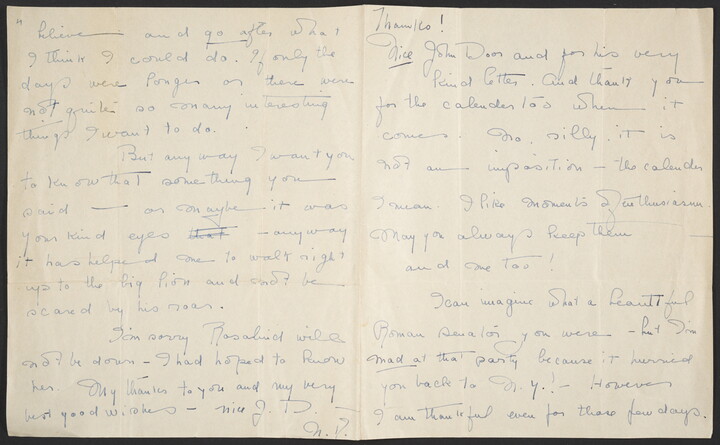 4
believe — and go after what
I think I could do. If only the
days were longer or there were
not quite so many interesting
things I want to do.
But anyway I want you
to know that something you
said — or maybe it was
your kind eyes that — anyway
it has helped me to walk right
up to the big lion and not be
scared by his roar.
I'm sorry Rosalind will
not be down — I had hoped to know
her. My thanks to you and my very
best good wishes — nice J. D. —
N. P.
Thanks!
Nice John Door and for his very
kind letter. And thank you
for the calendar too when it
comes. No, silly, it is
not an imposition — the calender
I mean. I like moments of enthusiasm.
May you always keep them —
and me too!
I can imagine what a beautiful
Roman senator you were — but I'm
mad at that party because it hurried
you back to N. Y.! — However
I am thankful even for those few days.